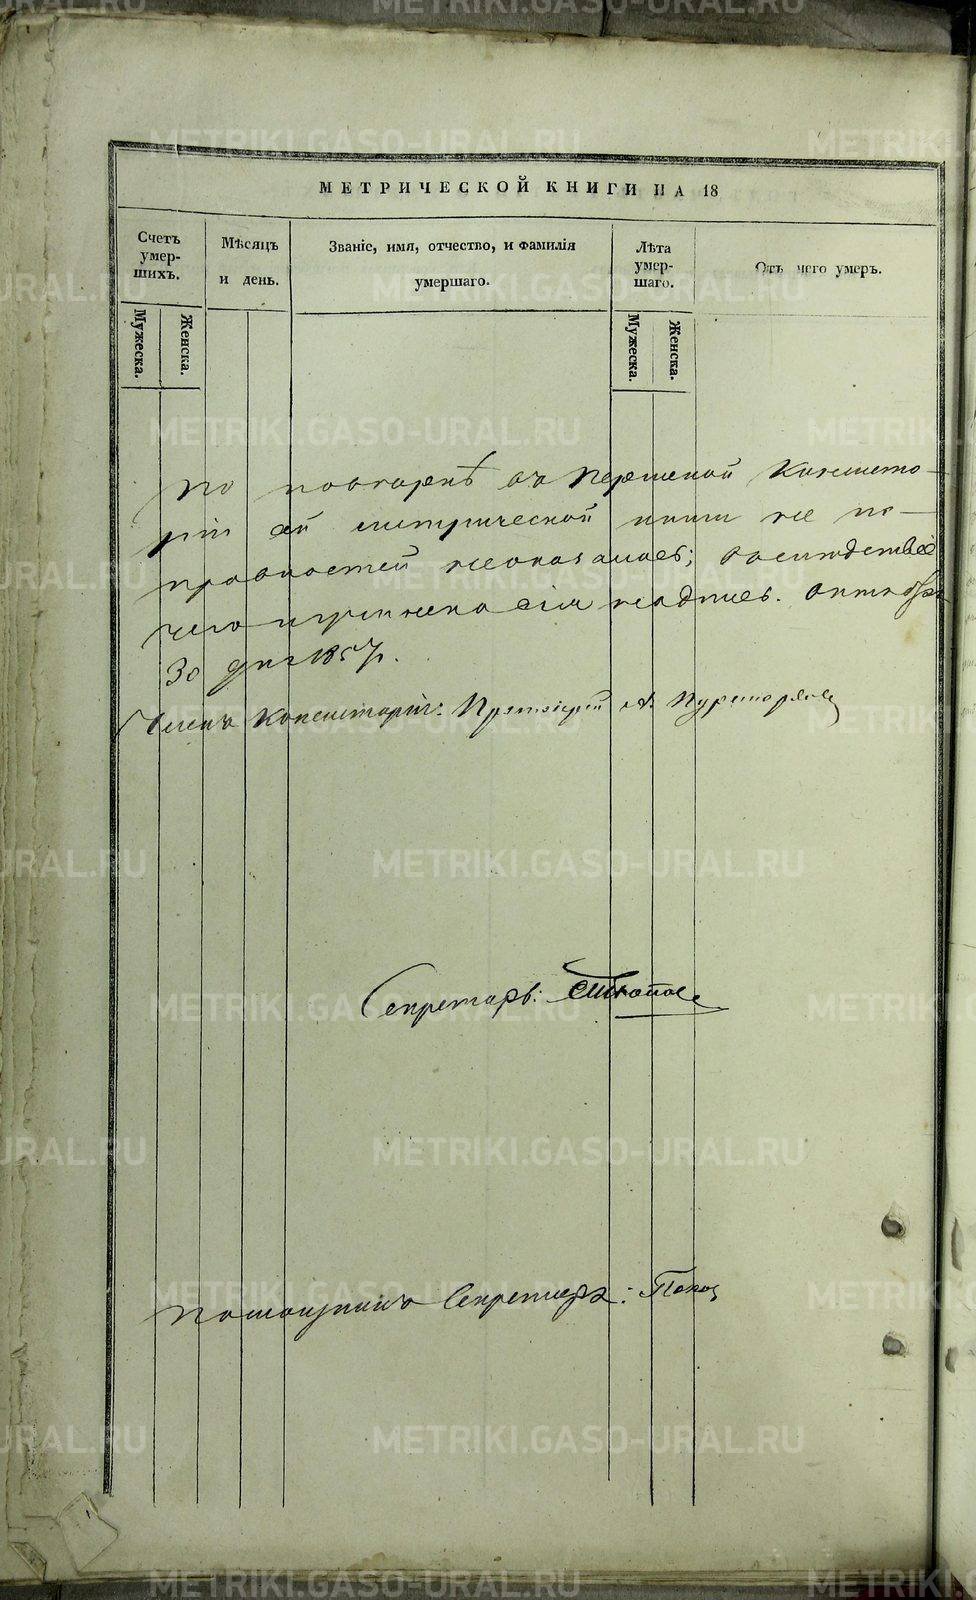 МЕТРИЧЕСКОЙ КНИГИ НА 18
Счетъ умер-шихъ.
Мужеска.
Женска.
Мѣсяцъ и день.
Званіе, имя, отчество, и фамилія умершаго.
Лѣта умер-шаго.
Мужеска.
Женска.
Отъ чего умеръ.
По повѣркѣ въ Пермской Консисто-
ріи сей метрической книги не
правностей неоказалось; вслѣдствіе
чего учинена сія надпись. Октября
30 дня 1857 г.
Членъ Консисторіи: Протоіерей А.
Секретарь:
Помощникъ Секретаря: Попов
METRIKI.GASO-URAL.RU